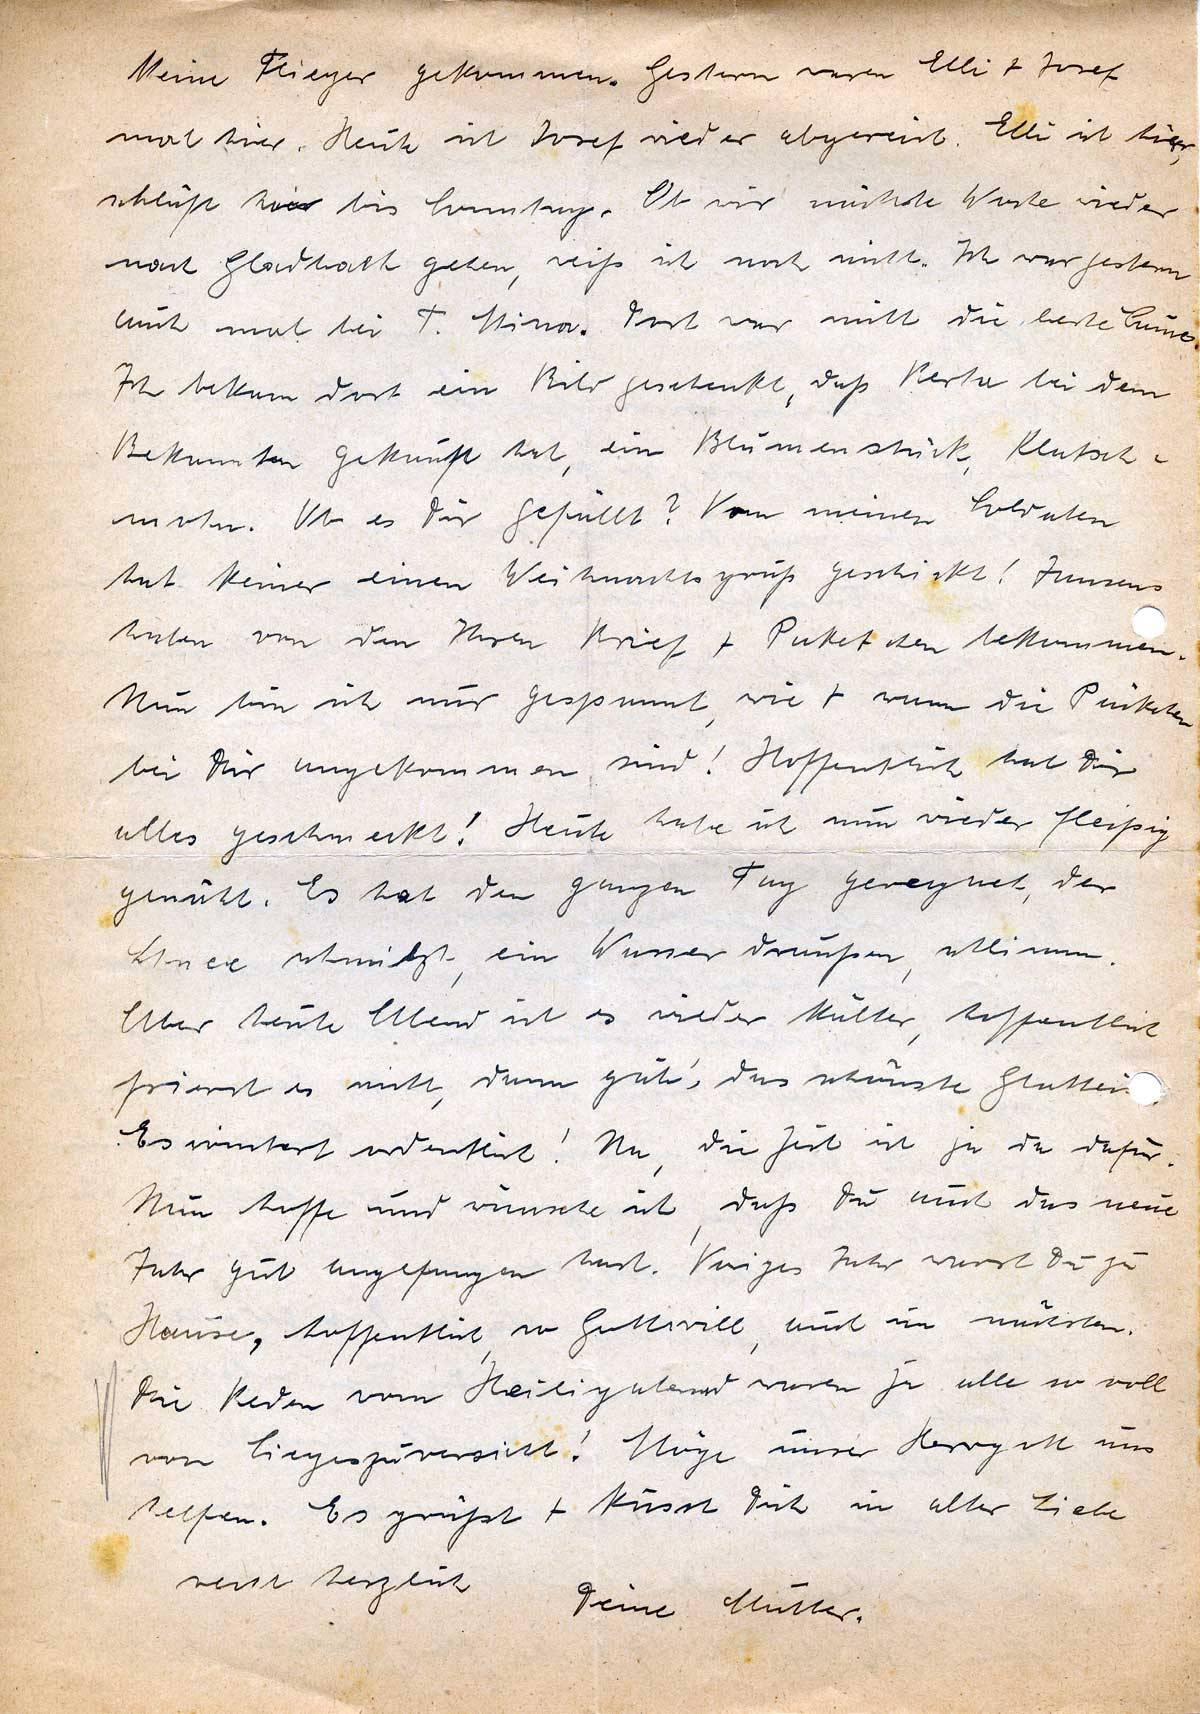 keine Flieger gekommen. Gestern waren Elli + Josef
mal hier. Heute ist Josef wieder abgereist. Elli ist hier,
schläft hier bis Sonntag. Ob wir nächste Woche wieder
nach Gladbach gehen, weiß ich noch nicht. Ich war gestern
auch mal bei T. Mina. Dort war nicht die beste Laune.
Ich bekam dort ein Bild geschenkt, daß Herta bei dem
Bekannten gekauft hat, ein Blumenstück, Klatsch-
mohn. Ob es Dir gefällt? Von meinen Soldaten
hat keiner einen Weihnachtsgruß geschickt! Jansens
haben von den Ihren Brief + Paketchen bekommen.
Nun bin ich nur gespannt, wie + wann die Päckchen
bei Dir angekommen sind! Hoffentlich hat Dir
alles geschmeckt! Heute habe ich nun wieder fleißig
genäht. Es hat den ganzen Tag geregnet, der
Schnee schmilzt, ein Wasser draußen, schlimm.
Aber heute Abend ist es wieder kälter, hoffentlich
friert es nicht, dann gib's das schönste Glatteis.
Es wintert ordentlich! Na, die Zeit ist ja da dafür.
Nun hoffe und wünsche ich, daß Du auch das neue
Jahr gut angefangen hast. Voriges Jahr warst Du zu
Hause, hoffentlich, so Gottwill, auch im nächsten.
Die Reden vom Heiligabend waren ja alle so voll
von Siegeszuversicht! Möge unser Herrgott uns
helfen. Es grüßt + küsst Dich in alter Liebe
recht herzlich
Deine Mutter.